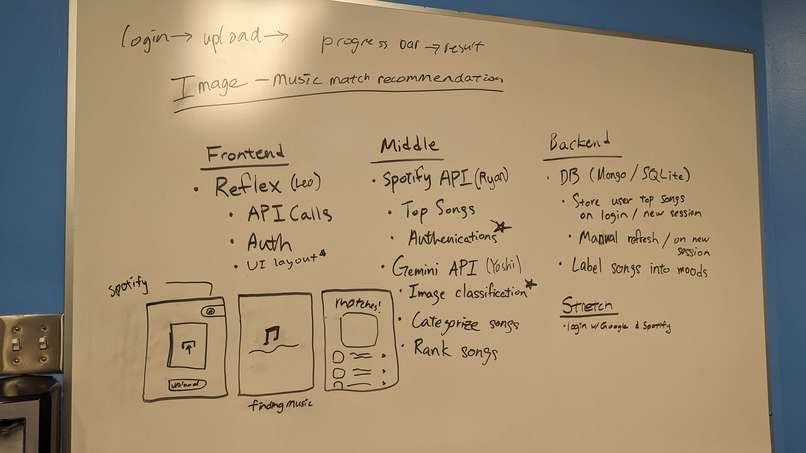 login → upload → progress bar → result
Image - Music match recommendation
Frontend
• Reflex (Leo)
• API Calls
• Auth
• UI layout*
Middle
• Spotify API (Ryan)
• Top Songs
• Authenications*
• Gemini API (Yoshi)
• Image classification*
• Categorize songs
• Rank songs
Backend
• DB (Mongo / SQLite)
• Store user top songs
on login / new session
• Manual refresh / on new
session
• Label songs into moods
Stretch
• login w/ Google & Spotify
spotify
upload
finding music
matches!